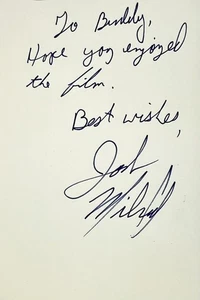 To Buddy,
Hope you enjoyed
the film.
Best wishes,
Josh